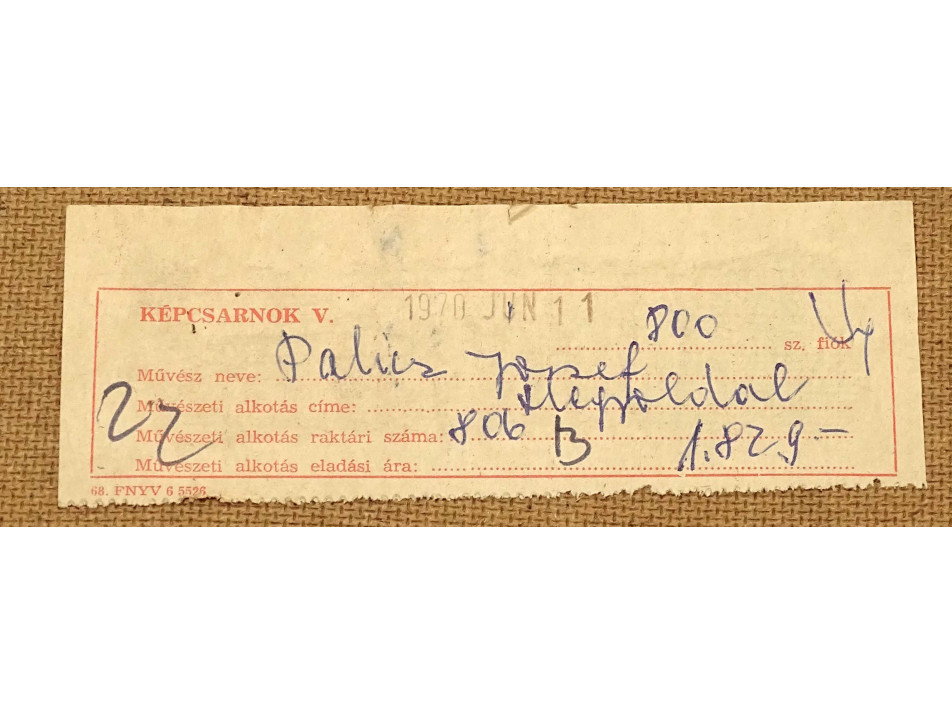 KÉPCSARNOK V. 1970 JÚN 11
800 sz. fiók
Művész neve: Palicz József
Művészeti alkotás címe: Hegyoldal
22
Művészeti alkotás raktári száma: 806 B 1.829-
Művészeti alkotás eladási ára:
68. FNYV 6 5526